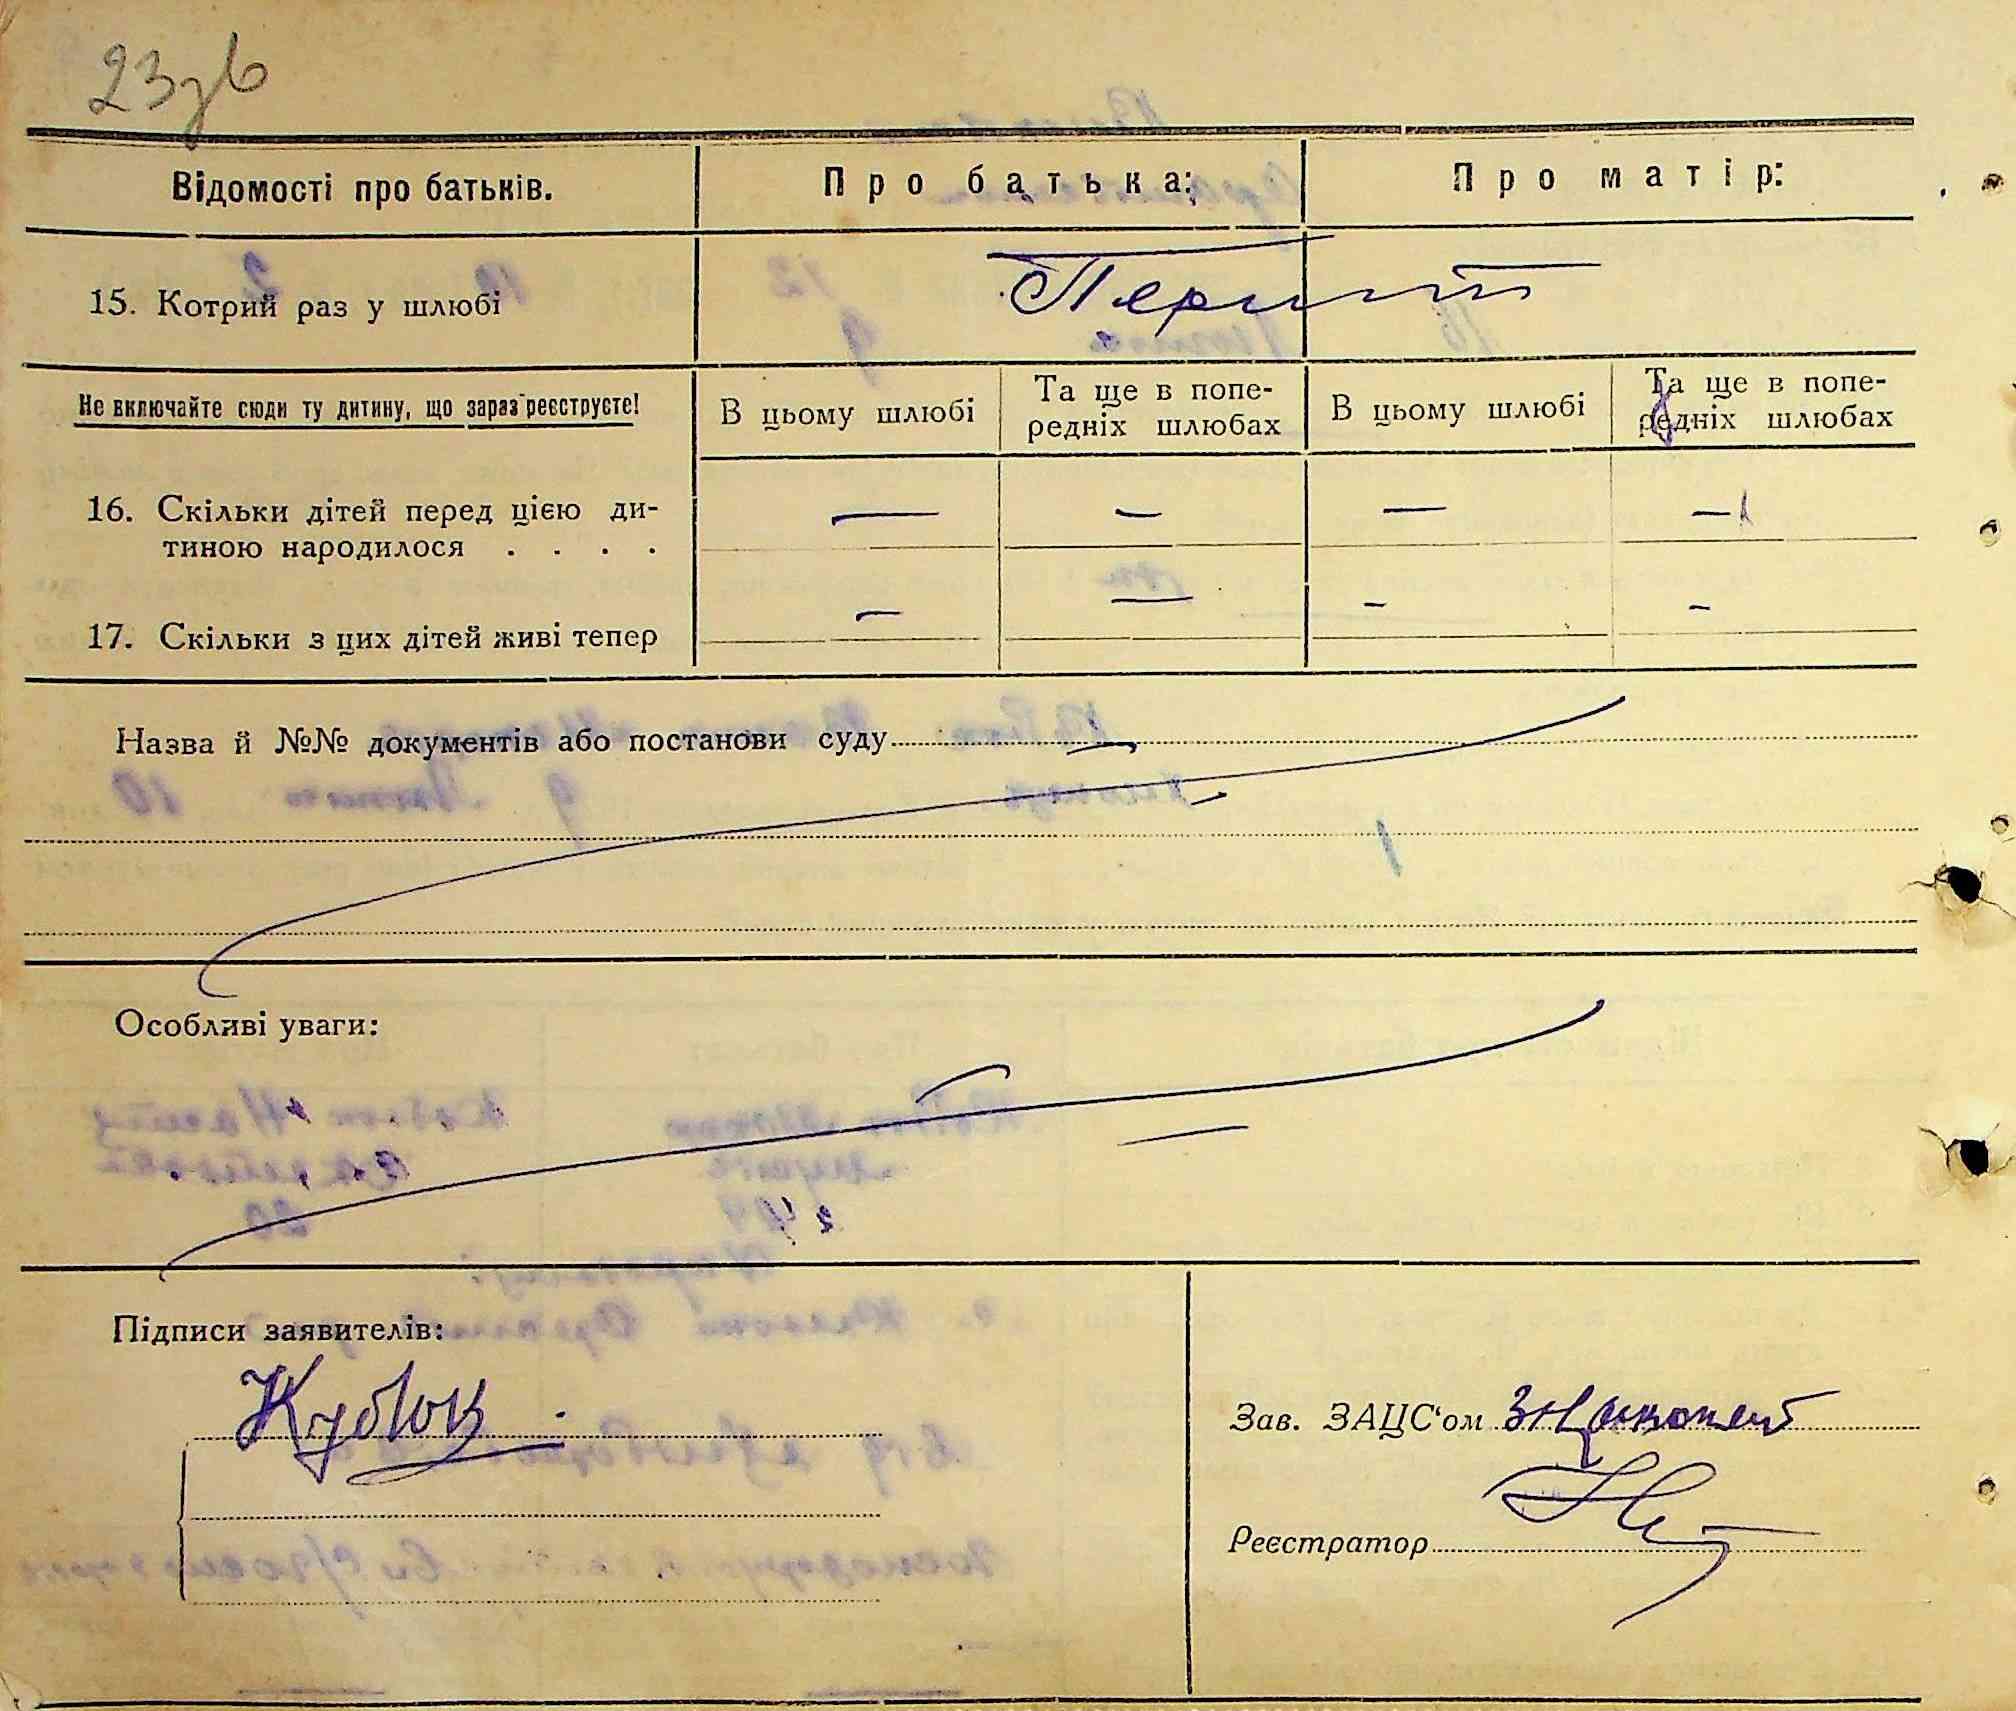 23зв
Відомості про батьків.
Про батька:
Про матір:
15. Котрий раз у шлюбі
Перший
Не включайте сюди ту дитину, що зараз реєструєте!
В цьому шлюбі
Та ще в попе-
редніх шлюбах
В цьому шлюбі
Та ще в попе-
редніх шлюбах
16. Скільки дітей перед цією ди-
тиною народилося . . . .
— — — —
17. Скільки з цих дітей живі тепер
— — — —
Назва й №№ документів або постанови суду
Особливі уваги:
Підписи заявителів:
Кубюк
Зав. ЗАЦС‘ом
Реєстратор